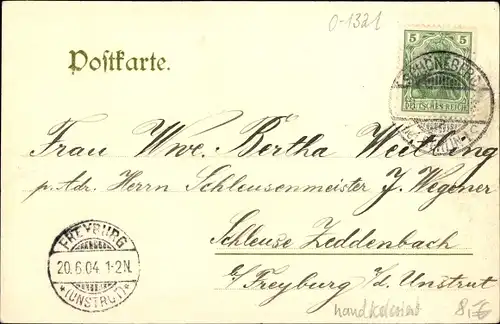 0-1321
Postkarte.
5 5
DEUTSCHES REICH
SCHÖNEBERG
BERLIN
Frau Wwe. Bertha Weitling
p. Adr. Herrn Schleusenmeister J. Wegener
Schleuse Zeddenbach
b/Freyburg a. d. Unstrut
FREYBURG
20.6.04 1-2N.
*(UNSTRUT)*
handkoloriert 8,-